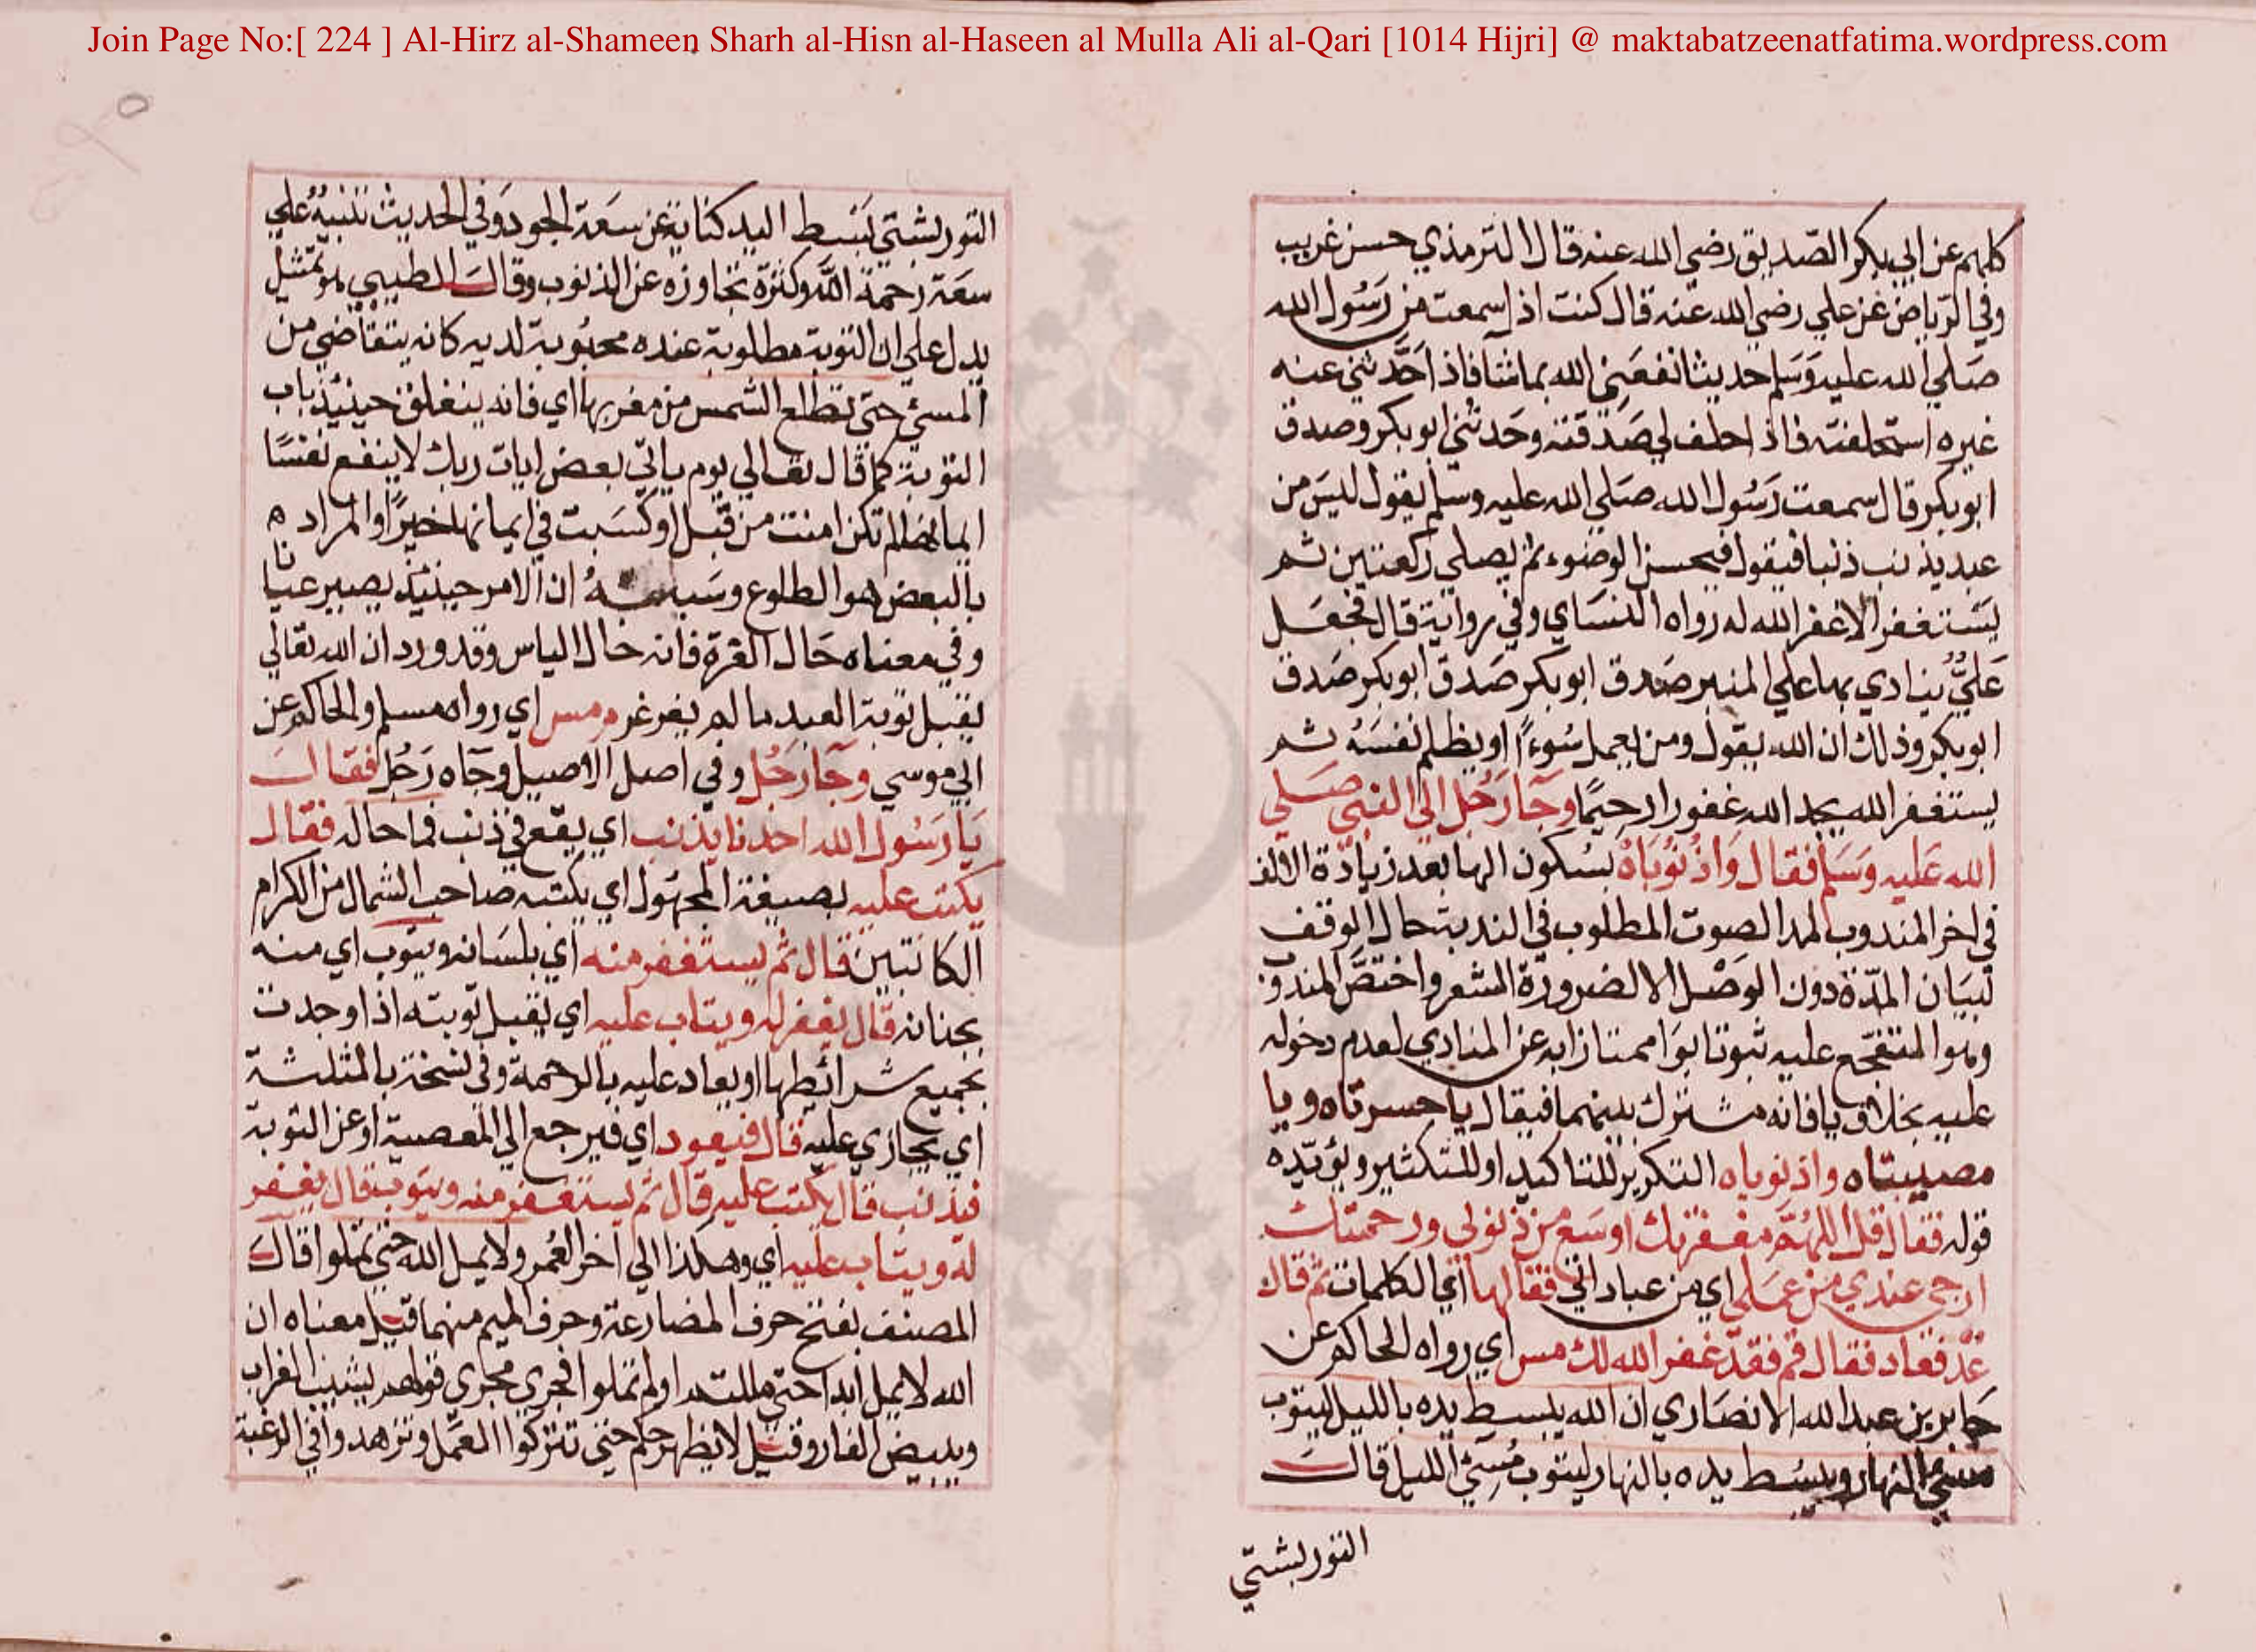 Join Page No:[ 224 ] Al-Hirz al-Shameen Sharh al-Hisn al-Haseen al Mulla Ali al-Qari [1014 Hijri] @ maktabatzeenatfatima.wordpress.com
كلهم عن ابي بكر الصديق رضي الله عنه قال الترمذي حسن غريب
وفي الرياض عن علي رضي الله عنه قال كنت اذا سمعت من رسول الله
صلي الله عليه وسلم حديثا نفعني الله بما شا فاذا حدثني عنه
غيره استحلفته فاذا حلف لي صدقته وحدثني ابو بكر وصدق
ابو بكر قال سمعت رسول الله صلي الله عليه وسلم يقول ليس من
عبد يذنب ذنبا فيقول فيحسن الوضوء ثم يصلي ركعتين ثم
يستغفر الا غفر الله له رواه النساي وفي رواية قال فجعل
علي ينادي بها علي المنبر صدق ابو بكر صدق ابو بكر صدق
ابو بكر وذلك ان الله يقول ومن يعمل سوءا او يظلم نفسه ثم
يستغفر الله يجد الله غفورا رحيما وجا رجل الي النبي صلي
الله عليه وسلم فقال واذنوباه بسكون الها بعد زيادة الالف
في اخر المندوب لمد الصوت المطلوب في الندبة حال الوقف
لبيان المدة دون الوصل الا لضرورة الشعر واختص المندوب
وهو المتفجع عليه ثبوتا بوا ممتازا به عن المنادي لعدم دخوله
عليه بخلاف يا فانه مشترك بينهما فيقال يا حسرتاه ويا
مصيبتاه واذنوباه التكرير للتاكيد او للتكثير ويؤيده
قوله فقال قل اللهم مغفرتك اوسع من ذنوبي ورحمتك
ارجي عندي من عملي اي من عباداتي فقالها اي الكلمات ثم قال
عد فعاد فقال قم فقد غفر الله لك مس اي رواه الحاكم عن
جابر بن عبد الله الانصاري ان الله يبسط يده بالليل ليتوب
مسيء النهار ويبسط يده بالنهار ليتوب مسيء الليل قال
التوربشتي
التوربشتي بسط اليد كناية عن سعة الجود وفي الحديث تنبيه علي
سعة رحمة الله وكثرة تجاوزه عن الذنوب وقال الطيبي هو تمثيل
يدل علي ان التوبة مطلوبة عنده محبوبة لديه كانه يتقاضي من
المسيء حتي تطلع الشمس من مغربها اي فانه ينغلق حينئذ باب
التوبة كما قال تعالي يوم ياتي بعض ايات ربك لا ينفع نفسا
ايمانها لم تكن امنت من قبل او كسبت في ايمانها خيرا والمراد ه
بالبعض هو الطلوع ان الامر حينئذ يصير عيانا
وفي معناه حال الغرغرة فانه حال الياس وقد ورد ان الله تعالي
يقبل توبة العبد ما لم يغرغر م مس اي رواه مسلم والحاكم عن
ابي موسي وجا رجل وفي اصل الاصيل وجاه رجل فقال
يا رسول الله احدنا يذنب اي يقع في ذنب فما حاله فقال
يكتب عليه بصيغة المجهول اي يكتبه صاحب الشمال من الكرام
الكاتبين قال ثم يستغفر منه اي بلسانه ويتوب اي منه
بجنانه قال يغفر له ويتاب عليه اي يقبل توبته اذا وجدت
بجميع شرائطها او يعاد عليه بالرحمة وفي نسخة بالمثلثة
اي يجازي عليه قال فيعود اي فيرجع الي المعصية او عن التوبة
فيذنب قال يكتب عليه قال ثم يستغفر منه ويتوب قال يغفر
له ويتاب عليه اي وهكذا الي اخر العمر ولا يمل الله حتي تملوا قال
المصنف بفتح حرف المضارعة وحرف الميم منهما قيل معناه ان
الله لا يمل ابدا حتي مللتم او لم تملوا فجري مجري قولهم يشيب الغراب
ويبيض الفار وقيل لا يظهر حتي تتركوا العمل وتزهدوا في الرغبة